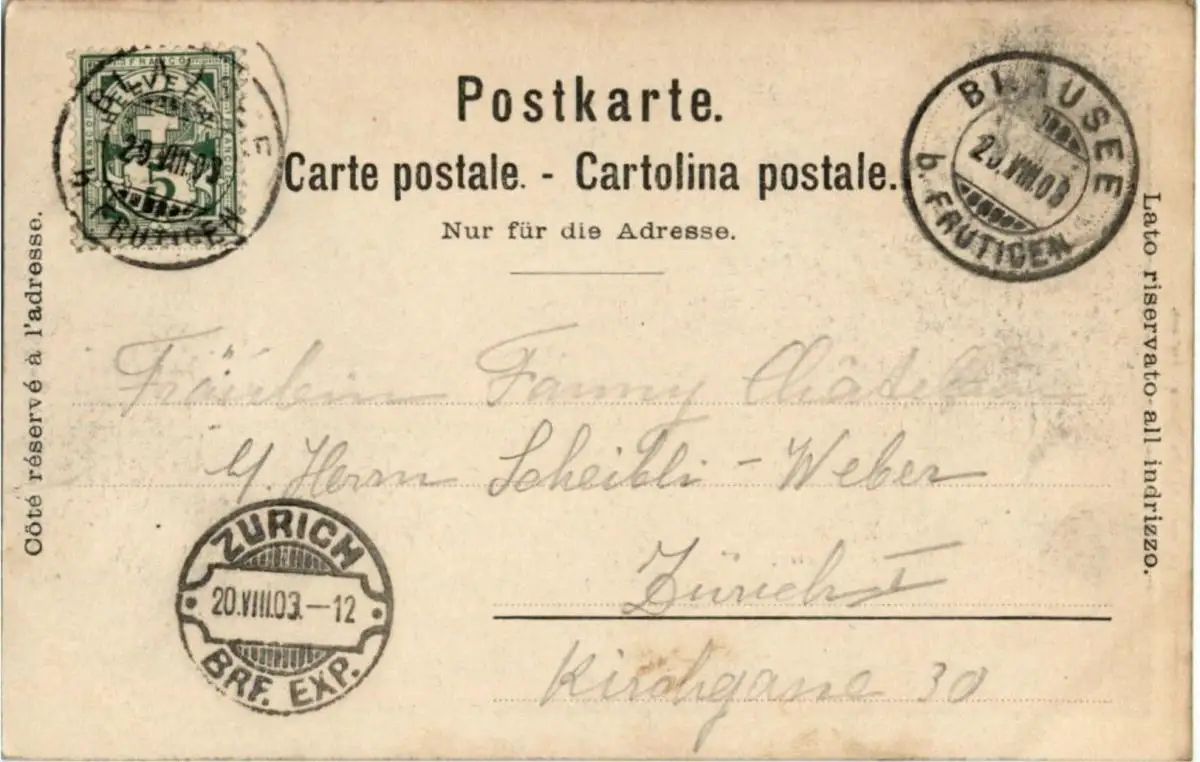 FRANCO
HELVETIA
20.VIII.03
5
b. FRUTIGEN
Postkarte.
Carte postale. - Cartolina postale.
Nur für die Adresse.
BLAUSEE
20.VIII.03
b. FRUTIGEN
Côté réservé à l'adresse.
Lato riservato all indrizzo.
Fräulein Fanny
Herrn Scheibli - Weber
Zürich I
Kirchgasse 30
ZÜRICH
20.VIII.03.-12
BRF. EXP.